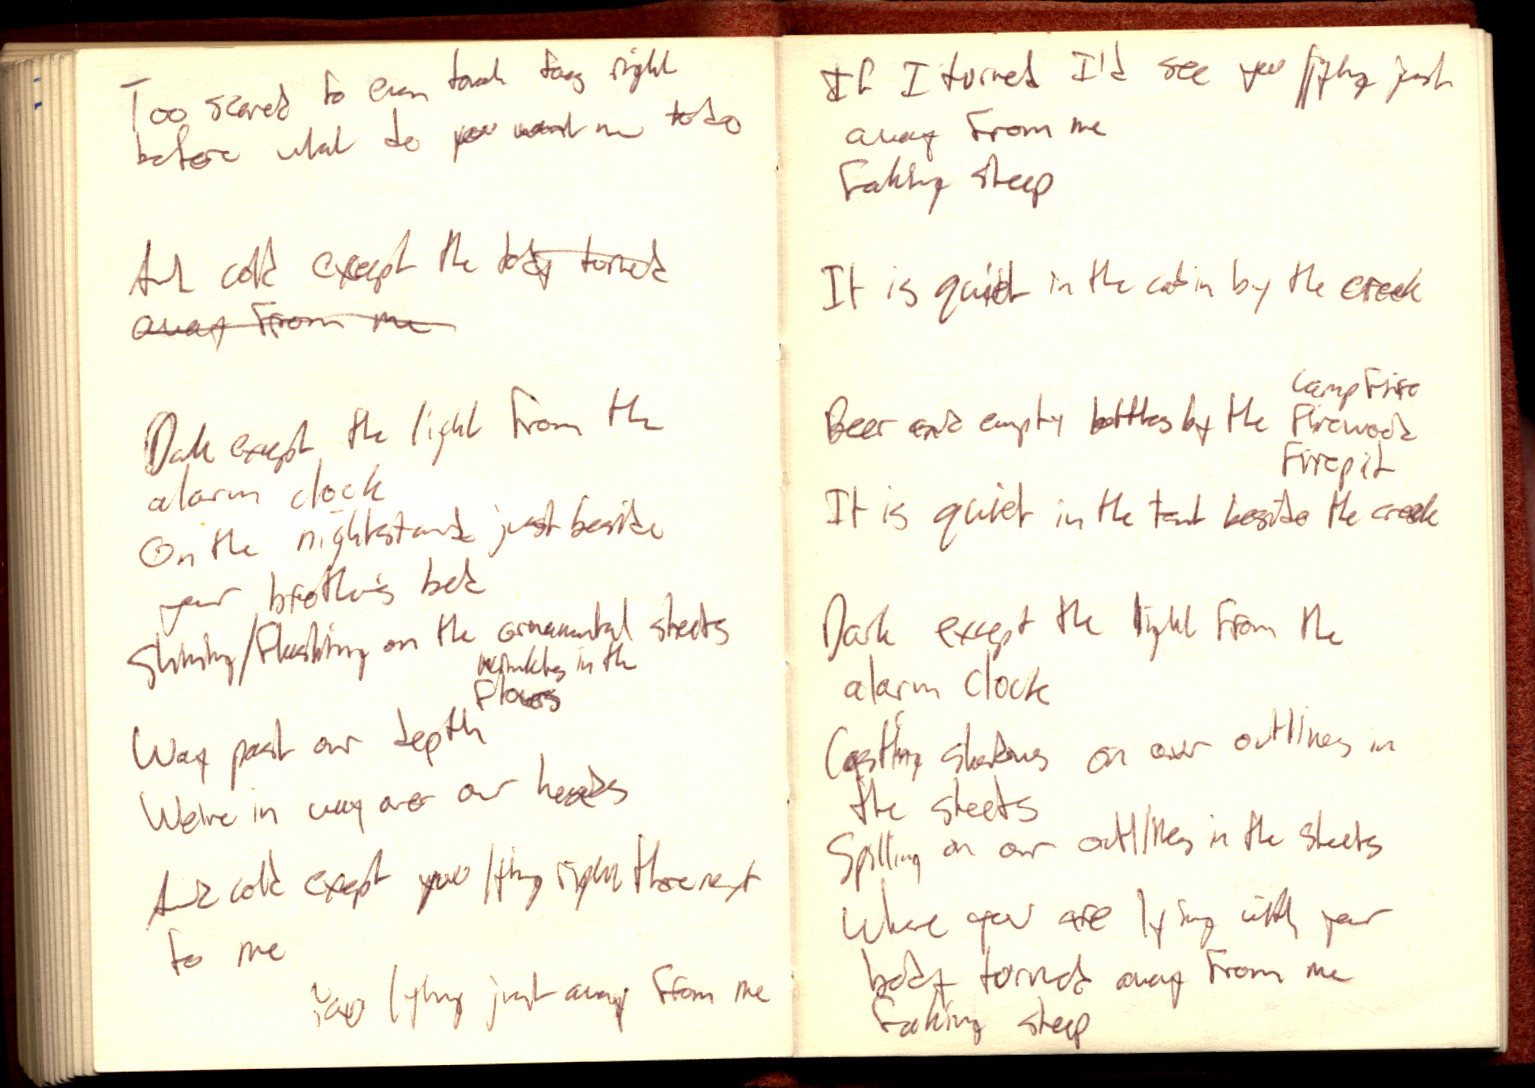 Too scared to even touch legs right
before what do you want me to do
And cold except the body turned
away from me
Dark except the light from the
alarm clock
On the nightstand just beside
your brother's bed
Shining/Flashing on the ornamental sheets
wrinkles in the
flowers
Way past our depth
We're in way over our heads
And cold except you lying right there next
to me
You lying just away from me
If I turned I'd see you lying just
away from me
Faking sleep
It is quiet in the cabin by the creek
Campfire
Beer and empty bottles by the Firewood
Firepit
It is quiet in the tent beside the creek
Dark except the light from the
alarm clock
Casting shadows on our outlines in
the sheets
Spilling on our outlines in the sheets
Where you are lying with your
body turned away from me
Faking sleep